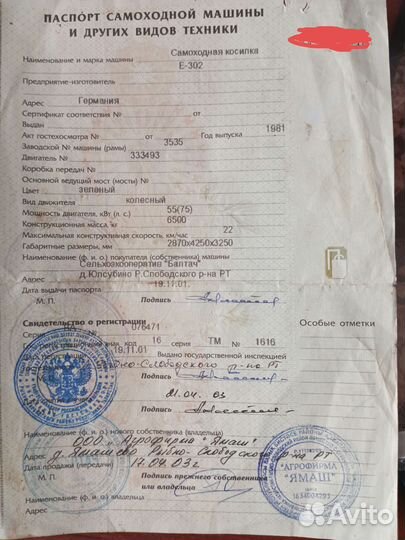 ПАСПОРТ САМОХОДНОЙ МАШИНЫ
И ДРУГИХ ВИДОВ ТЕХНИКИ
Самоходная косилка
Наименование и марка машины Е-302
Предприятие-изготовитель
Адрес Германия
Сертификат соответствия № от
Выдан
Акт гостехосмотра № от Год выпуска 1981
Заводской № машины (рамы) 3535
Двигатель № 333493
Коробка передач №
Основной ведущий мост (мосты) №
Цвет зеленый
Вид движителя колесный
Мощность двигателя, кВт (л. с.) 55(75)
Конструкционная масса, кг 6500
Максимальная конструктивная скорость, км/час 22
Габаритные размеры, мм 2870х4250х3250
Наименование (ф. и. о.) покупателя (собственника) машины
Сельхозкооператив "Балтач"
Адрес д.Юлсубино Р.Слободского р-на РТ
Дата выдачи паспорта 19.11.01.
М. П. Подпись
Свидетельство о регистрации Особые отметки
Серия 076471
знак код 16 серия ТМ № 1616
19.11.01 Выдано государственной инспекцией
Слободского р-на РТ
Подпись
21.04.03
Подпись
Наименование (ф. и. о.) нового собственника (владельца)
ООО "Агрофирма "Ямаш"
д. Ямашево Рыбно-Слободского р-на РТ
Дата продажи (передачи) 17.04.03г
М. П. Подпись прежнего собственника
или владельца
Наименование (ф. и. о.) собственника (владельца)
Адрес
"АГРОФИРМА
"ЯМАШ"
Avito